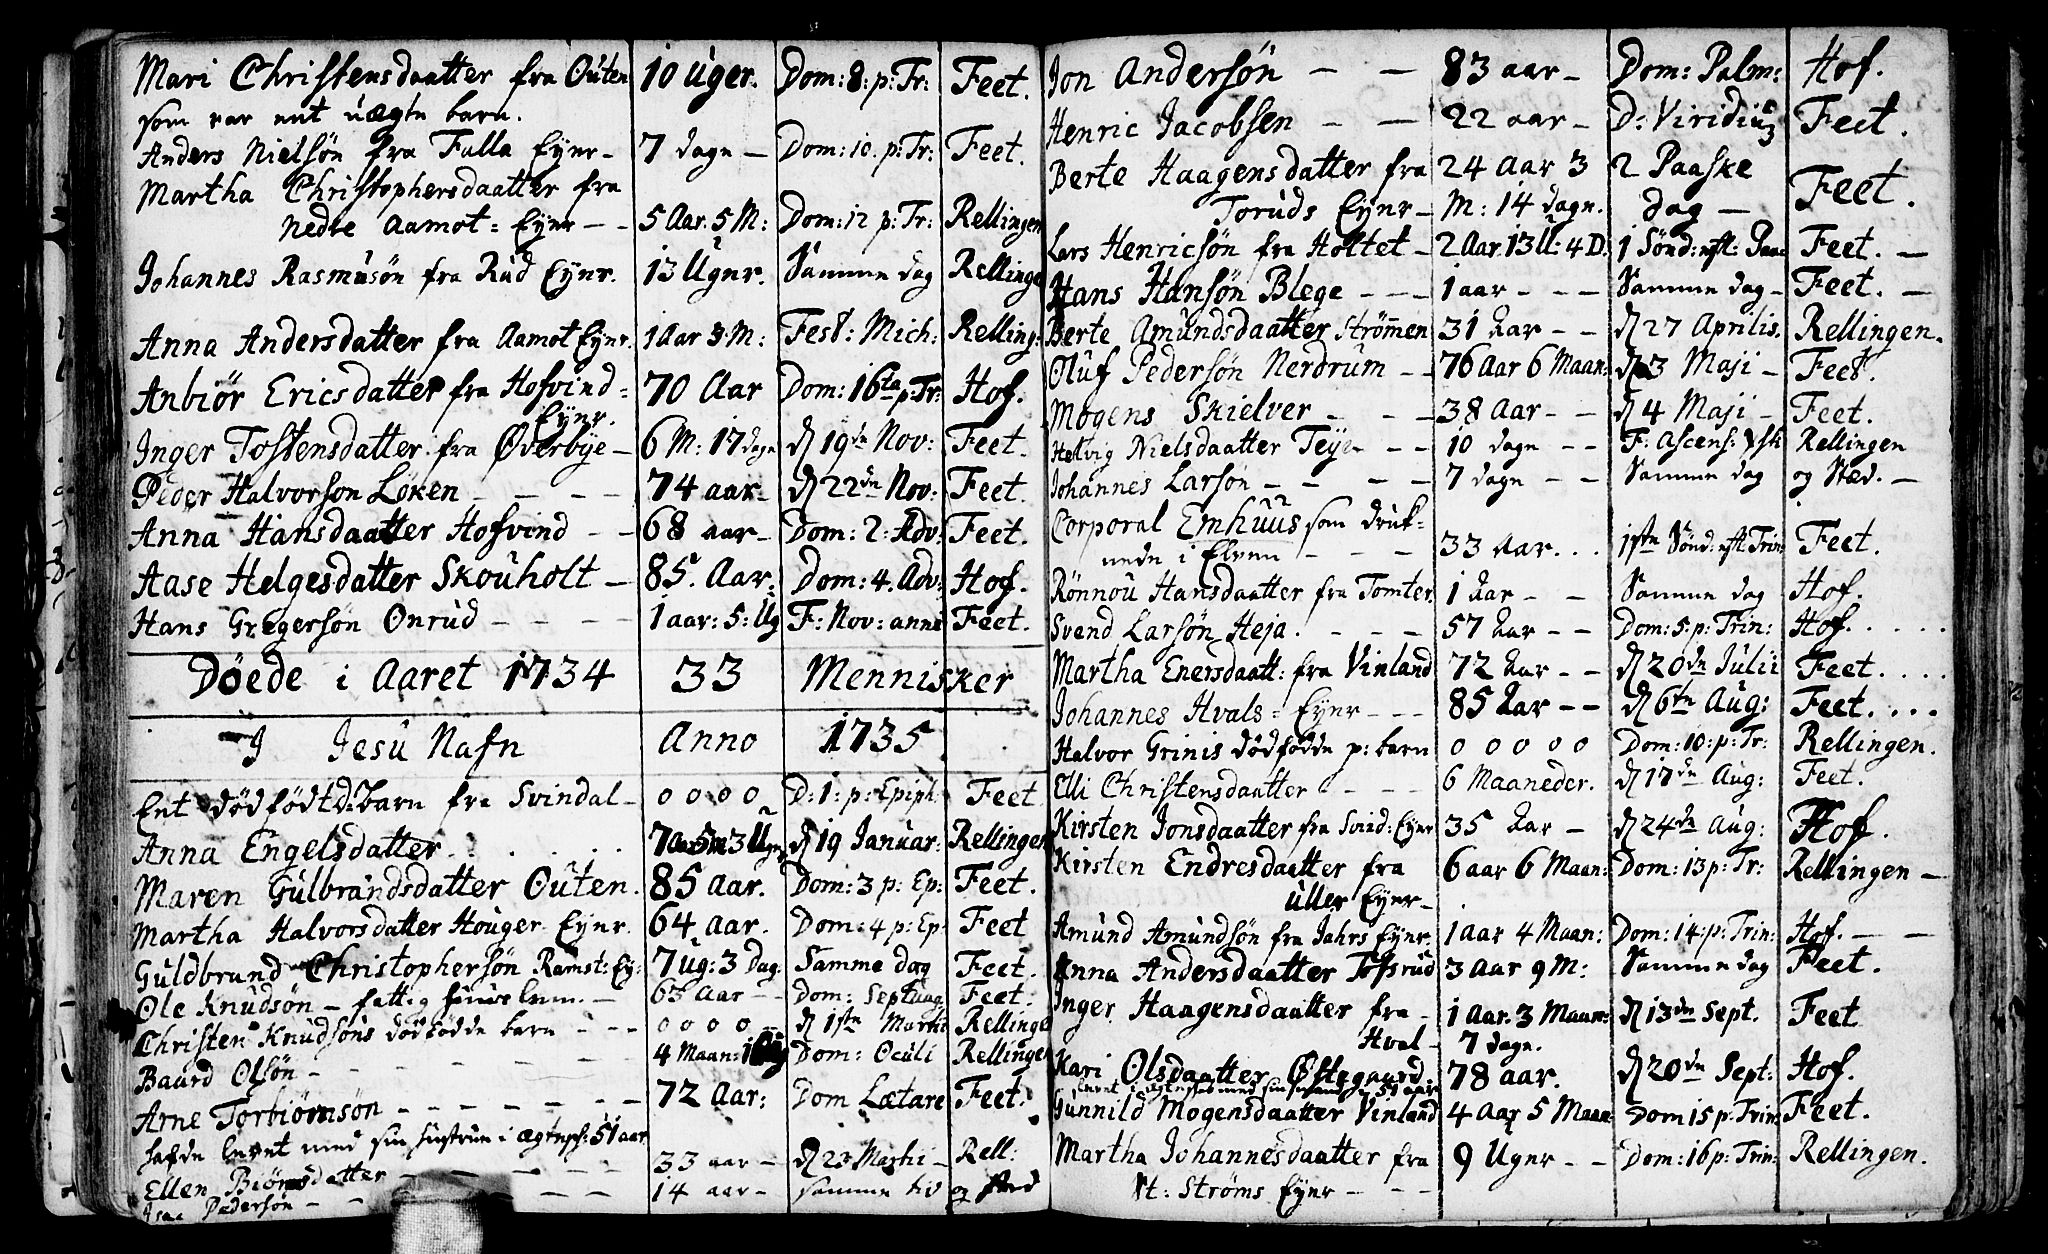 Mari Christensdaatter fra Outen 10 Uger. Dom: 8: p: Tr: Feet.
som var eet uægte barn.
Anders Nielsön fra Falla Eyer - 7 dage - Dom: 10. p: Tr: Feet.
Martha Christophersdaatter fra
Nedre Aamot = Eyer - - 5 Aar. 5 M: Dom: 12 p: Tr: Rellingen
Johannes Rasmusön fra Rud Eyer. 13 Uger. Samme dag Rellinge
Anna Andersdatter fra Aamot Eyer. 1 Aar 3 M: Fest: Mich: Relling:
Anbiör Ericsdatter fra Hofvind = 70 Aar Dom: 16ta p: Tr: Hof.
Eyer.
Inger Tostensdatter fra Øverbye - 6 M: 17 dage d 19de Nov: Feet.
Peder Halvorson Löken - - - - 74 aar - d 22de Nov: Feet.
Anna Hansdaatter Hofvind - - 68 aar - Dom: 2: Adv: Feet.
Aase Helgesdatter Skouholt - 85. Aar. Dom: 4. Adv: Hof.
Hans Gregersön Onrud - - - - 1 aar: 5: Ug F: Nov: anni Feet.
Döede i Aaret 1734 33 Mennisker
I Jesu Nafn Anno 1735
Eet dödfödt D: barn fra Svindal - 0 0 0 0 D: 1: p: Epiph: Feet
Anna Engelsdatter . . . . . 7 Aar 5 m 3 Uger d 19 Januar: Rellingen
Maren Gulbrandsdatter Outen. 85 aar. Dom: 3 p: Ep: Feet.
Martha Halvorsdatter Houger Eyer. 64 aar. Dom: 4 p: Ep: Feet
Guldbrand Christophersön Ramst: Ey: 7 ug: 3 Dag: Samme dag Feet.
Ole Knudsön - fattig huuse lem. - 63 aar - - Dom: Septuag: Feet.
Christen Knudsöns dödfödde barn - - - 0 0 0 0 d 1ste Marti Rellinge
Baard Olsön - - - - - 4 Maan: Dom: Oculi Rellingen
Arne Torbiörnsön - - - - - - 72 Aar: Dom Lætare Feet.
hafde levet med sin hustrue i ægtesch: 51 aar
Ellen Biörnsdatter - - - - - 33 aar - d 23 Marti - Rell:
Pedersön - - - - 14 aar - samme tid og sted
Jon Andersön - - 83 aar - Dom: Palm: Hof.
Henric Jacobsen - - 22 aar - D: Viridium Feet.
Berte Haagensdatter fra 24 Aar 3 2 Paaske Feet.
Toruds Eyer - M: 14 dage. dag -
Lars Henricsön fra Holtet - 2 Aar. 13 U: 4 D: 1 Sönd: eft: Paa Feet. -
Hans Hansön Blege - - - 1 aar - - - Samme dag - Feet. -
Berte Amundsdaatter Strömmen 31 Aar - - d 27 Aprilis. Rellingen.
Oluf Pedersön Nerdrum - - 76 Aar 6 Maan: d 3 Maji - Feet.
Mogens Skielver - - - 38 Aar - - d 4 Maji - Feet.
Helvig Nielsdaatter Teye - - - 10 dage - - F: Ascens: Rellingen
Johannes Larsön - - - - 7 dage - - Samme dag og Stæd. -
Corporal Emhuus som druk=
nede i Elven - - - 33 Aar. . . 1ste Sönd: eft: Trin: Feet.
Rönnou Hansdaatter fra Tomter. 1 Aar - - Samme dag Hof.
Svend Larsön Heja. - - - 57 Aar - - Dom: 5: p: Trin: Hof. . . . .
Martha Enersdaatt: fra Vinland 72 Aar - - d 20de Julii Feet. . . .
Johannes Hvals = Eyer - - - 85 Aar - - d 6te Aug: Feet. . . .
Halvor Grinis dödfödde p: barn 0 0 0 0 0 Dom: 10: p: Tr: Rellingen.
Elli Christensdaatter - - - 6 Maaneder. d 17de Aug: Feet.
Kirsten Jonsdaatter fra Svind: Eyer 35 Aar - d 24de Aug: Hof.
Kirsten Endresdaatter fra 6 aar 6 Maan: Dom: 13 p: Tr: Rellingen -
uller Eyer -
Amund Amundsön fra Jahrs Eyer. 1 aar 4 Maan: Dom: 14: p: Trin: Hof. - -
Anna Andersdaatter Tofsrud 3 Aar 9 M: Samme dag Feet.
Inger Haagensdaatter fra - 1 Aar. 3 Maan: d 13de Sept. Feet
Hval - 7 dage.
Kari Olsdaatter Østegaard 78 aar. d 20de Sept: Hof.
levet i ægteskab med sin husbond i 51 aar
Gunnild Mogensdaatter Vinland 4 Aar 5 Maan Dom 15 p: Trin: Feet.
Martha Johannesdaatter fra 9 Uger - - Dom: 16 p: Trin: Rellingen.
St: Ströms Eyer - - -